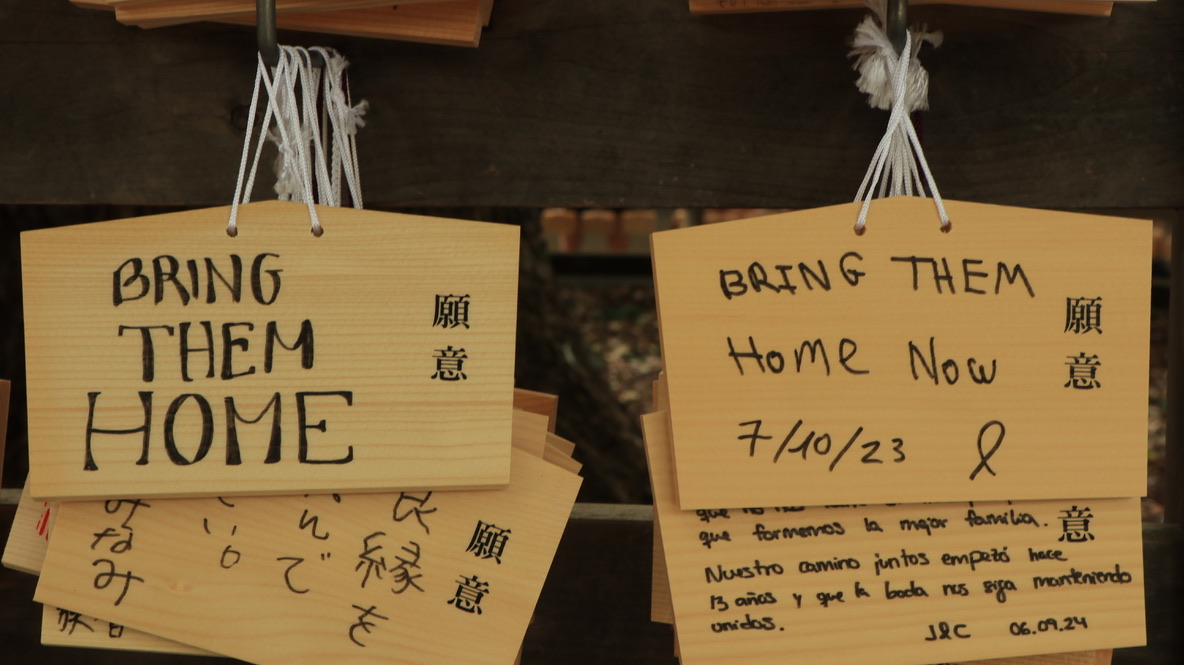 BRING
THEM
HOME
願
意
良縁を
んで
い。
みなみ
願
意
BRING THEM
Home Now
7/10/23
願
意
que formemos la mejor familia.
意
Nuestro camino juntos empezó hace
13 años y que la boda nos siga manteniendo
unidos.
J&C 06.09.24